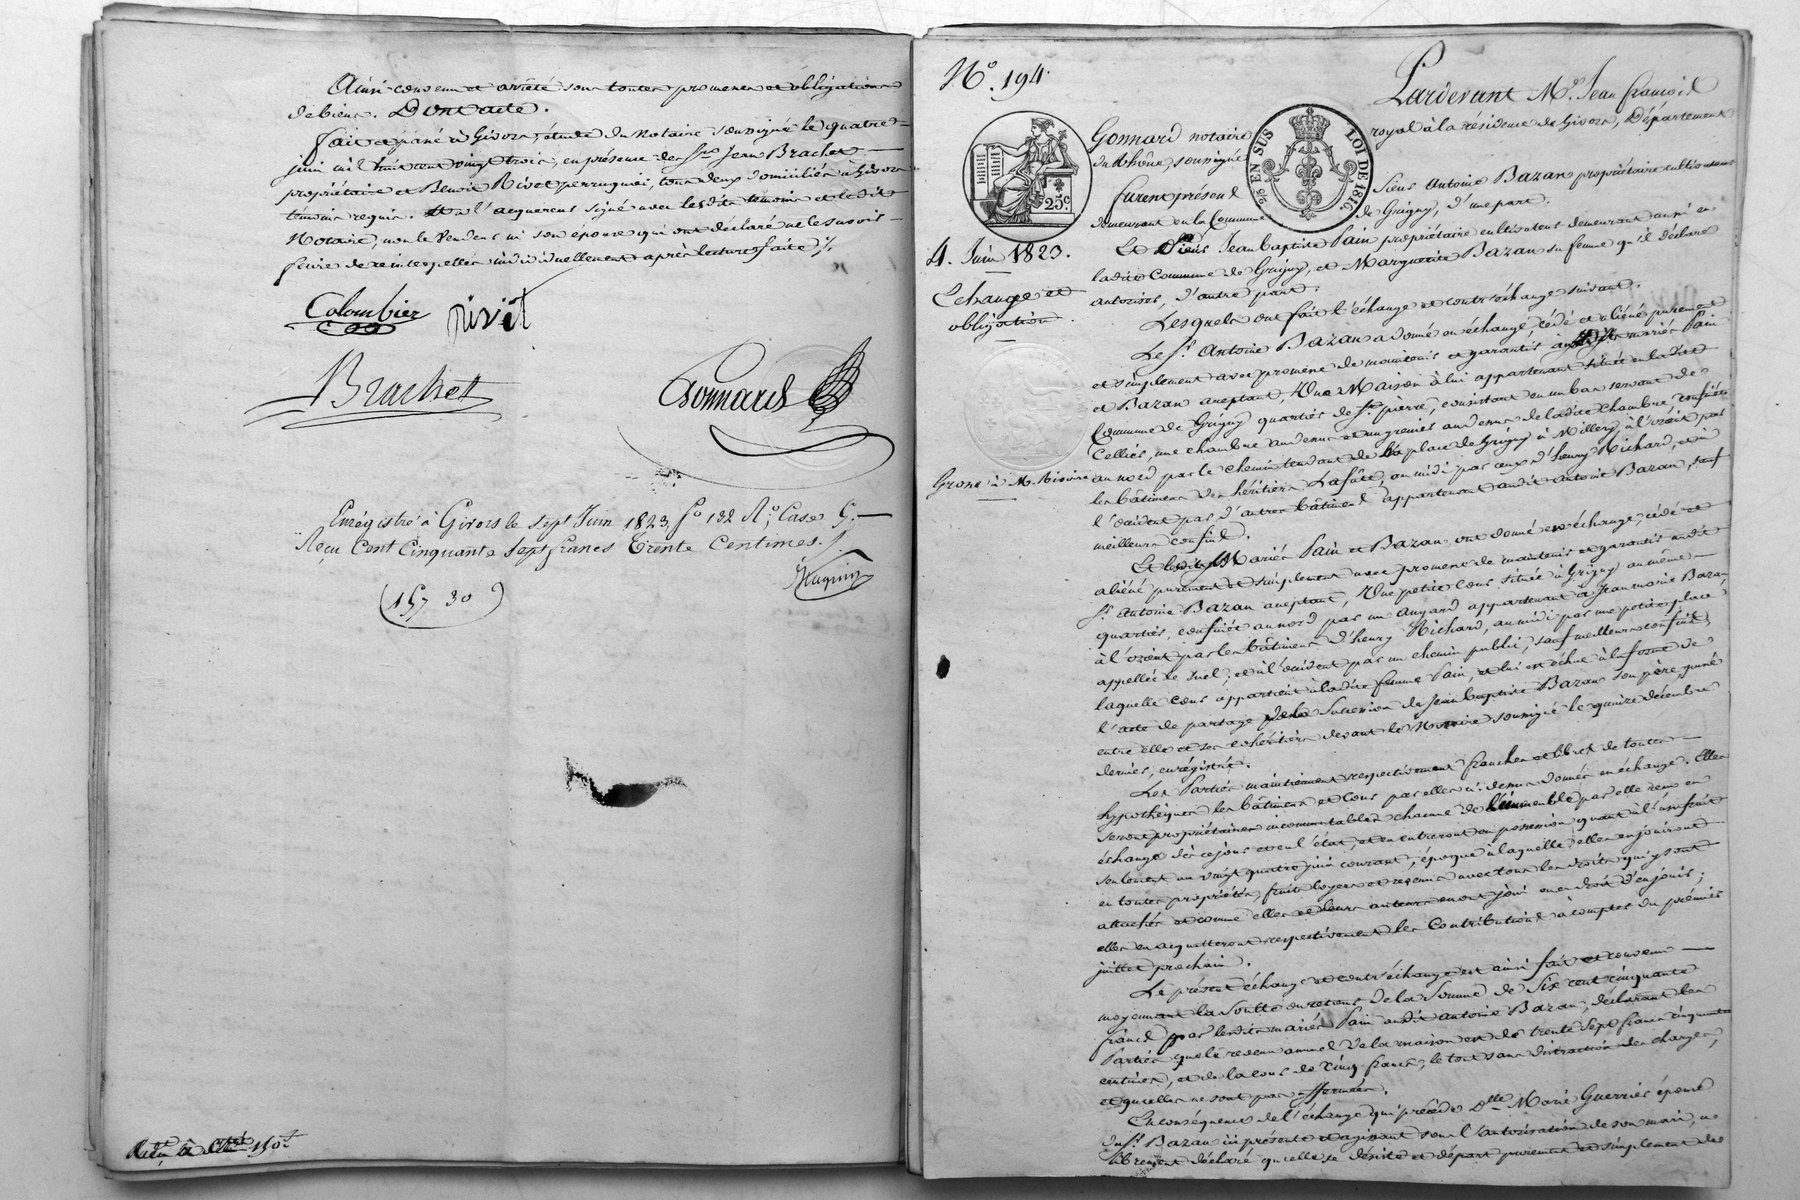 Ainsi convenu et arrêté sous toutes promesses et obligations
de biens. Dont acte.
fait et passé à Givors, étude du Notaire soussigné le quatre
juin mil huit cent vingt trois, en présence des Srs Jean Brachet
propriétaire et Benoit Rivet perruquier, tous deux domiciliés à Givors
témoins requis. et a l'acquereur signé avec lesdits témoins et ledit
Notaire, non le Vendeur ni son épouse qui ont déclaré ne le savoir
faire de ce interpellés individuellement après lecture faite /.
Colombier rivet
Brachet Gonnard
Enrégistré à Givors le sept Juin 1823, fo 132 Ro. Case 5.
Reçu Cent Cinquante sept francs Trente Centimes.
(157 30)
No. 194.
Pardevant Me. Jean françois
Gonnard notaire royal à la résidence de Givors, Département
du Rhône, soussigné
25c.
26 EN SUS LOI DE 1816.
furent présent Sieur Antoine Bazan propriétaire cultivateur
demeurant en la Commune de Grigny, d'une part.
4. Juin 1823.
Echange et
obligation.
Et Sieur Jean baptiste Pain propriétaire cultivateur demeurant aussi en
ladite Commune de Grigny, et Marguerite Bazan sa femme qu'il déclare
autoriser, d'autre part.
Lesquels ont fait l'échange et contr'échange suivant.
Le Sr. Antoine Bazan a donné en échange, cédé et aliéné purement
et simplement avec promesse de maintenir et garantir auxdits mariés Pain
et Bazan acceptant, Une Maison à lui appartenant située en ladite
Commune de Grigny quartier de St. pierre, consistant en un bas servant de
Cellier, une chambre au dessus et un grenier au dessus de ladite chambre confinée
au nord par le chemin tendant de la place de Grigny à Millery, à l'orient par
les bâtimens des héritiers Lafûte, au midi par ceux d'henry Richard, et à
l'occident par d'autres bâtimens appartenant audit Antoine Bazan, sauf
meilleurs confins.
Grosse à M.
Et lesdits Mariés Pain et Bazan, ont donné en échange, cédé et
aliéné purement et simplement avec promesse de maintenir et garantir audit
Sr. Antoine Bazan acceptant, Une petite Cour située à Grigny au même
quartier, confinée au nord par un angard appartenant à Jean marie Bazan,
à l'orient par les bâtimens d'henry Richard, au midi par une petite place
appellée le Suel, et à l'occident par un chemin public, sauf meilleurs confins,
laquelle cour appartient à ladite femme Pain, et lui est échue à la forme de
l'acte de partage de la Succession de Jean baptiste Bazan son père, passé
entre elle et ses cohéritiers devant le Notaire soussigné le quinze décembre
dernier, enrégistré.
Les Parties maintiennent respectivement franches et libres de toutes
hypothèques les bâtimens et Cour par elles ci-dessus donnés en échange. Elles
seront propriétaires incommutables chacune de l'immeuble par elle reçu en
échange dès ce jour et en l'état, et en entreront en possession quant à l'usufruit
seulement au vingt quatre juin courant, époque à laquelle elles en jouiront
en toutes propriétés, fruits loyers et revenus avec tous les droits qui y sont
attachés et comme elles et leurs auteurs en ont joui ou eu droit d'en jouir;
elles en acquitteront respectivement les Contributions à compter du premier
juillet prochain.
Le présent échange et contr'échange est ainsi fait et convenu
moyennant la Soulte ou retour de la Somme de Six cent cinquante
francs par lesdits mariés Pain audit Antoine Bazan, déclarant les
Parties que le revenu annuel de la maison est de trente sept francs cinquante
centimes, et de la cour de Cinq francs, le tout sans distraction des charges,
et qu'elles ne sont pas affermées.
En conséquence de l'échange qui précède Dlle Marie Guerrier épouse
du Sr. Bazan ici présente et agissant sous l'autorisation de son mari, a
librement déclaré qu'elle se désiste et départ purement et simplement de